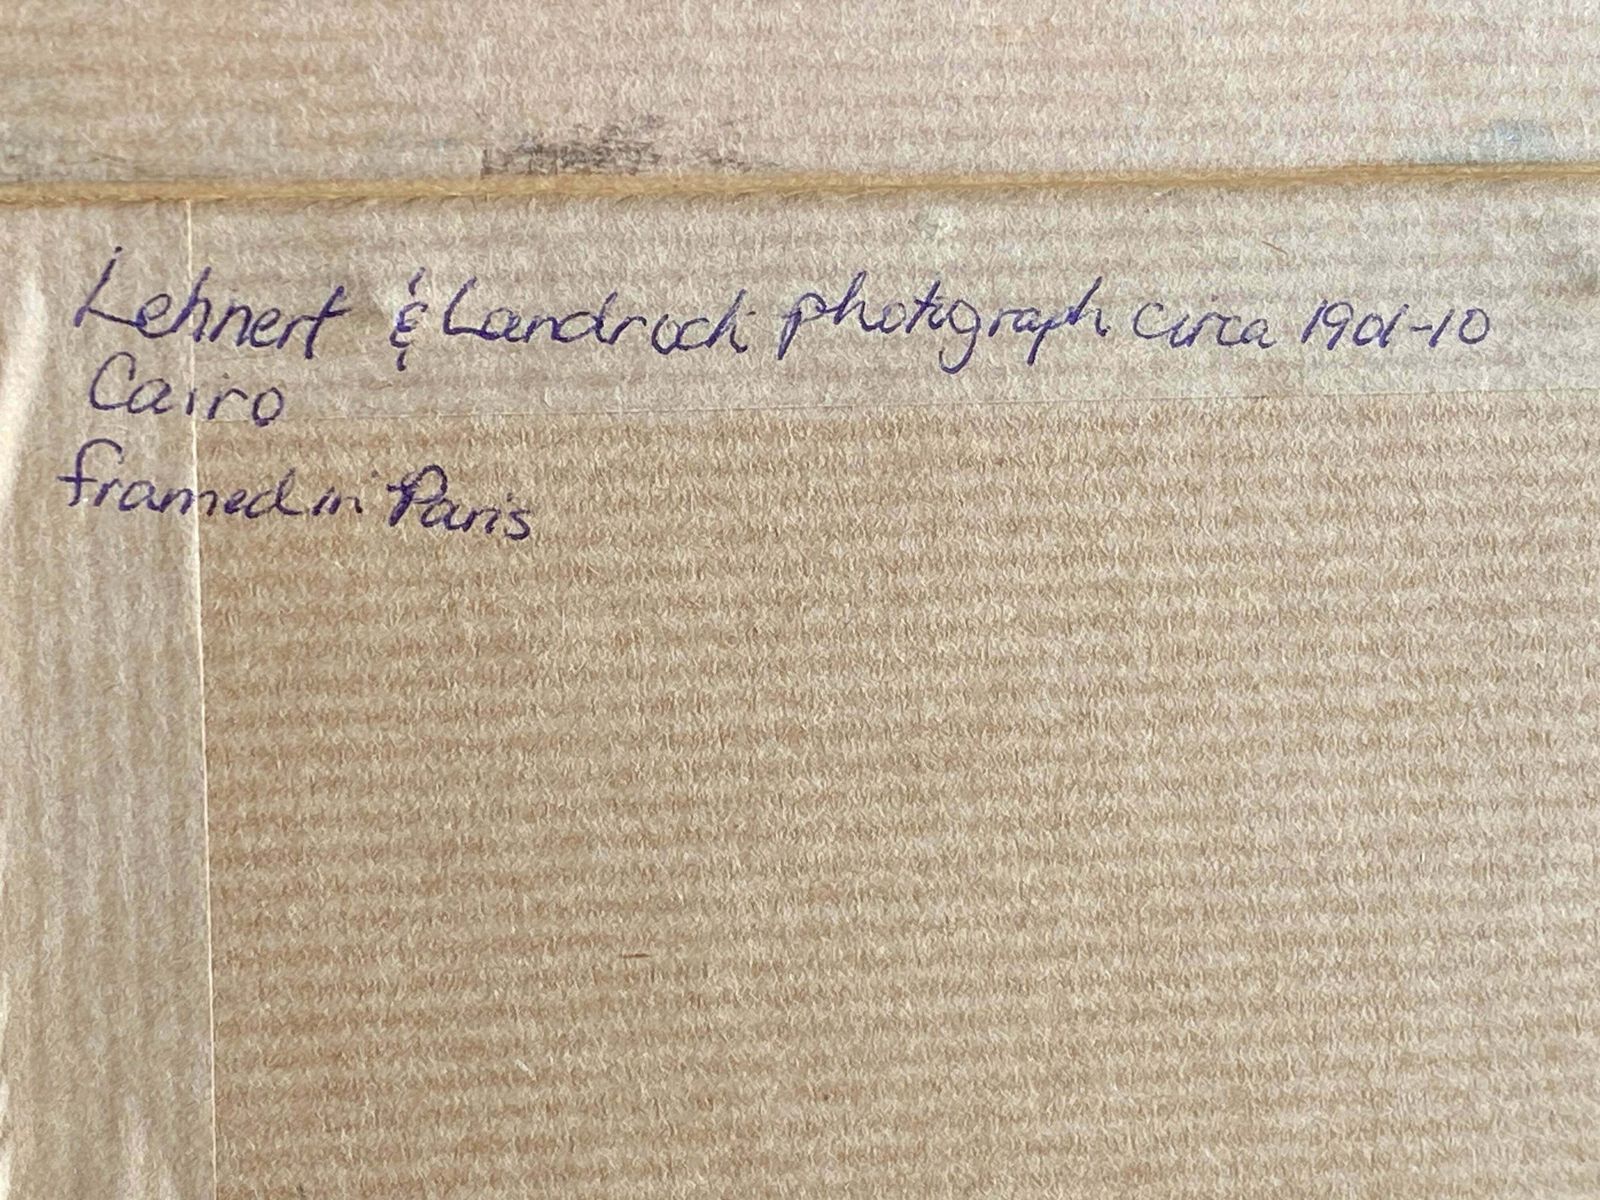 Lehnert & Landrock photograph circa 1901-10
Cairo
framed in Paris